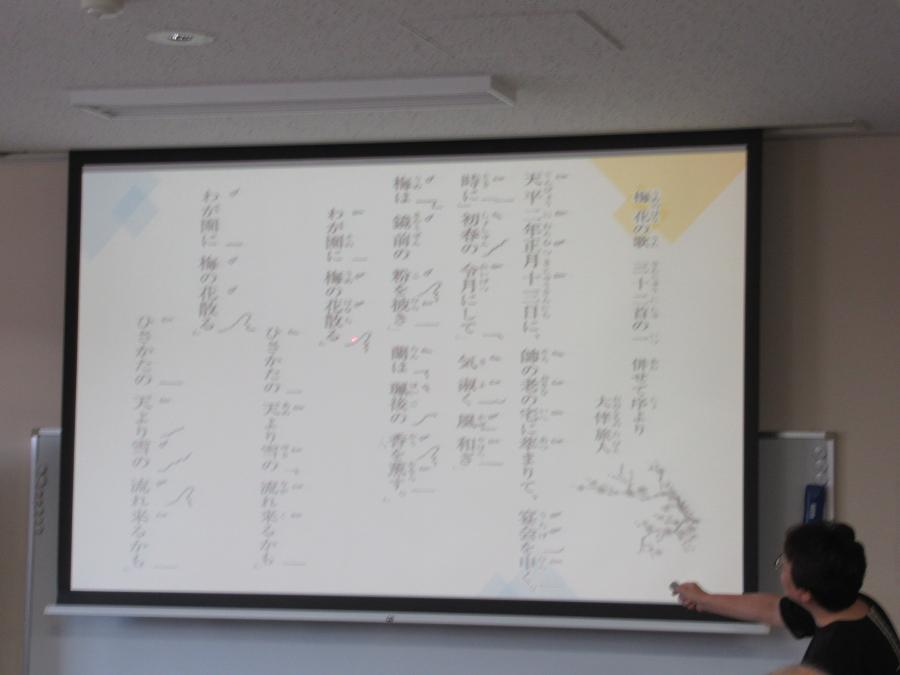 梅花の歌 三十二首の一 併せて序より
大伴旅人
天平二年正月十三日に、師の老の宅に萃まりて、宴会を申く。
時に、初春の令月にして、気淑く風和ぎ、
梅は鏡前の粉を披き、蘭は珮後の香を薫す。
わが園に 梅の花散る
ひさかたの 天より雪の 流れ来るかも
わが園に 梅の花散る
ひさかたの 天より雪の 流れ来るかも